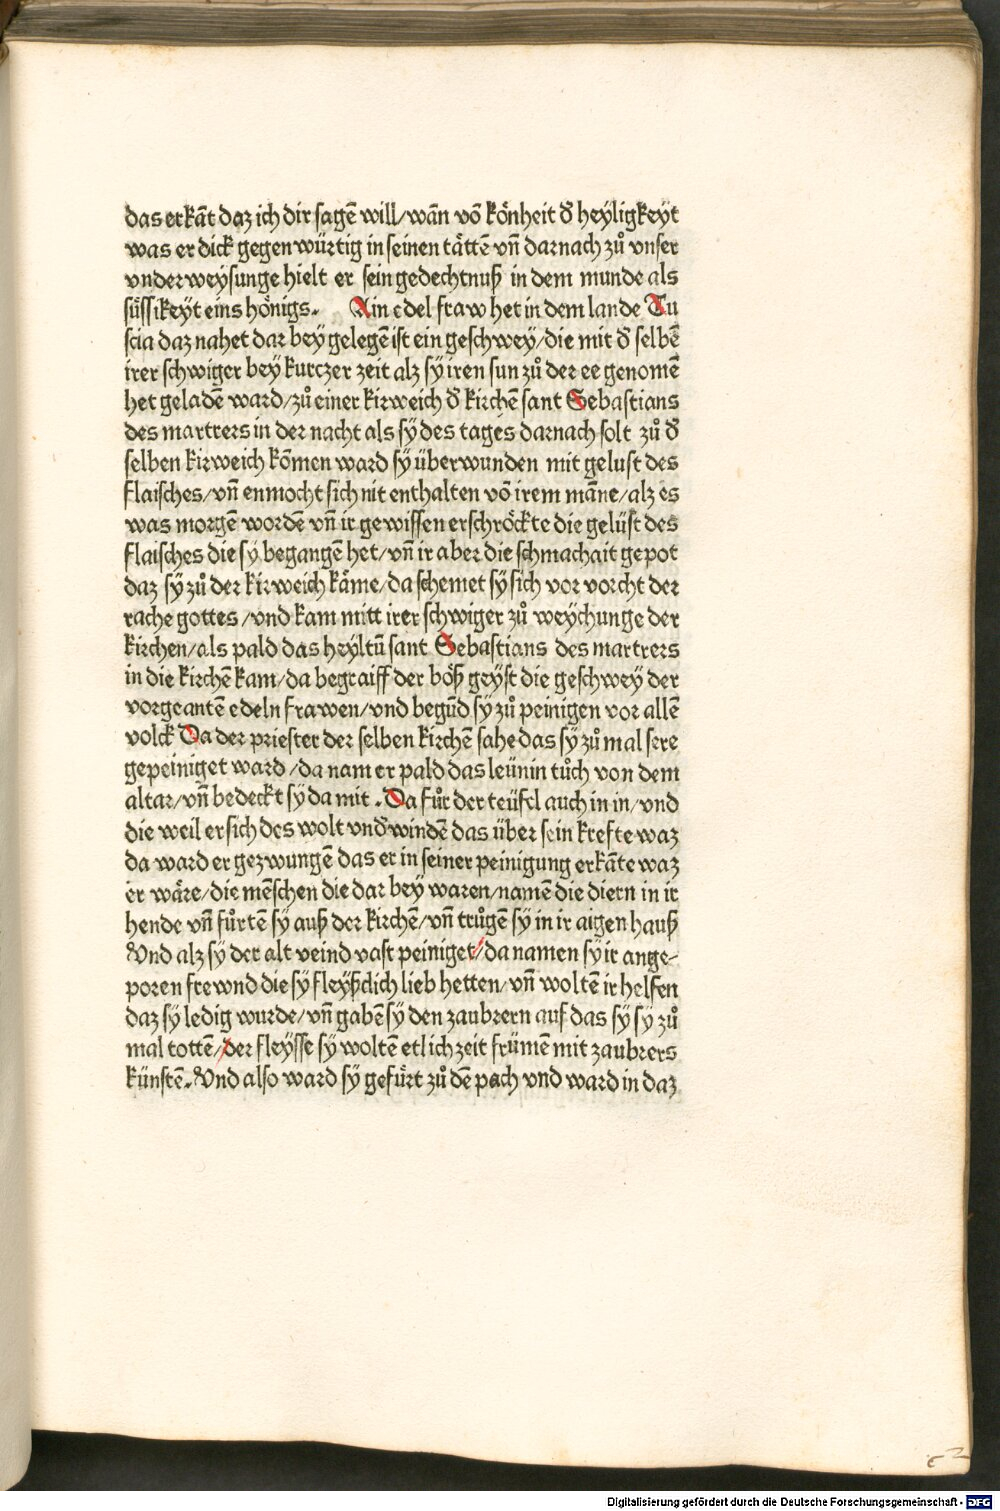 das erkāt daz ich dir sagē will/wān vō kőnheit d̄ heyligkeyt
was er dick gegenwürtig in seinen tåttē vn̄ darnach zů vnser
vnderweysunge hielt er sein gedechtnuß in dem munde als
süssikeyt eins hőnigs. Ain edel fraw het in dem lande Tu
scia daz nahet dar bey gelegē ist ein geschwey/die mit d̄ selbē
irer schwiger bey kurczer zeit alz sÿ iren sun zů der ee genomē
het geladē ward/zů einer kirweich d̄ kirchē sant Sebastians
des martrers in der nacht als sÿ des tages darnach solt zů d̄
selben kirweich kōmen ward sÿ überwunden mit gelust des
flaisches/vn̄ enmocht sich nit enthalten vō irem māne/alz es
was morgē wordē vn̄ ir gewissen erschröckte die gelüst des
flaisches die sÿ begangē het/vn̄ ir aber die schmachait gepot
daz sÿ zů der kirweich kåme/da schemet sÿ sich vor vorcht der
rache gottes/vnd kam mitt irer schwiger zů weychunge der
kirchen/als pald das heyltū sant Sebastians des martrers
in die kirchē kam/da begraiff der böß geyst die geschwey der
vorgeantē edeln frawen/vnd begūd sÿ zů peinigen vor allē
volck Da der priester der selben kirchē sahe das sÿ zů mal sere
gepeiniget ward/da nam er pald das leünin tůch von dem
altar/vn̄ bedeckt sÿ da mit. Da fůr der teüfel auch in in/vnd
die weil er sich des wolt vnd̄windē das über sein krefte waz
da ward er gezwungē das er in seiner peinigung erkāte waz
er wåre/die mēschen die dar bey waren/namē die diern in ir
hende vn̄ fůrtē sÿ auß der kirchē/vn̄ trůgē sÿ in ir aigen hauß
Vnd alz sÿ der alt veind vast peiniget/da namen sÿ ir ange-
poren frewnd die sÿ fleyßclich lieb hetten/vn̄ woltē ir helfen
daz sÿ ledig wurde/vn̄ gabē sÿ den zaubrern auf das sÿ sÿ zů
mal tottē/der fleysse sÿ woltē etlich zeit frümē mit zaubrers
künstē. Vnd also ward sÿ gefürt zů dē pach vnd ward in daz
Digitalisierung gefördert durch die Deutsche Forschungsgemeinschaft - DFG